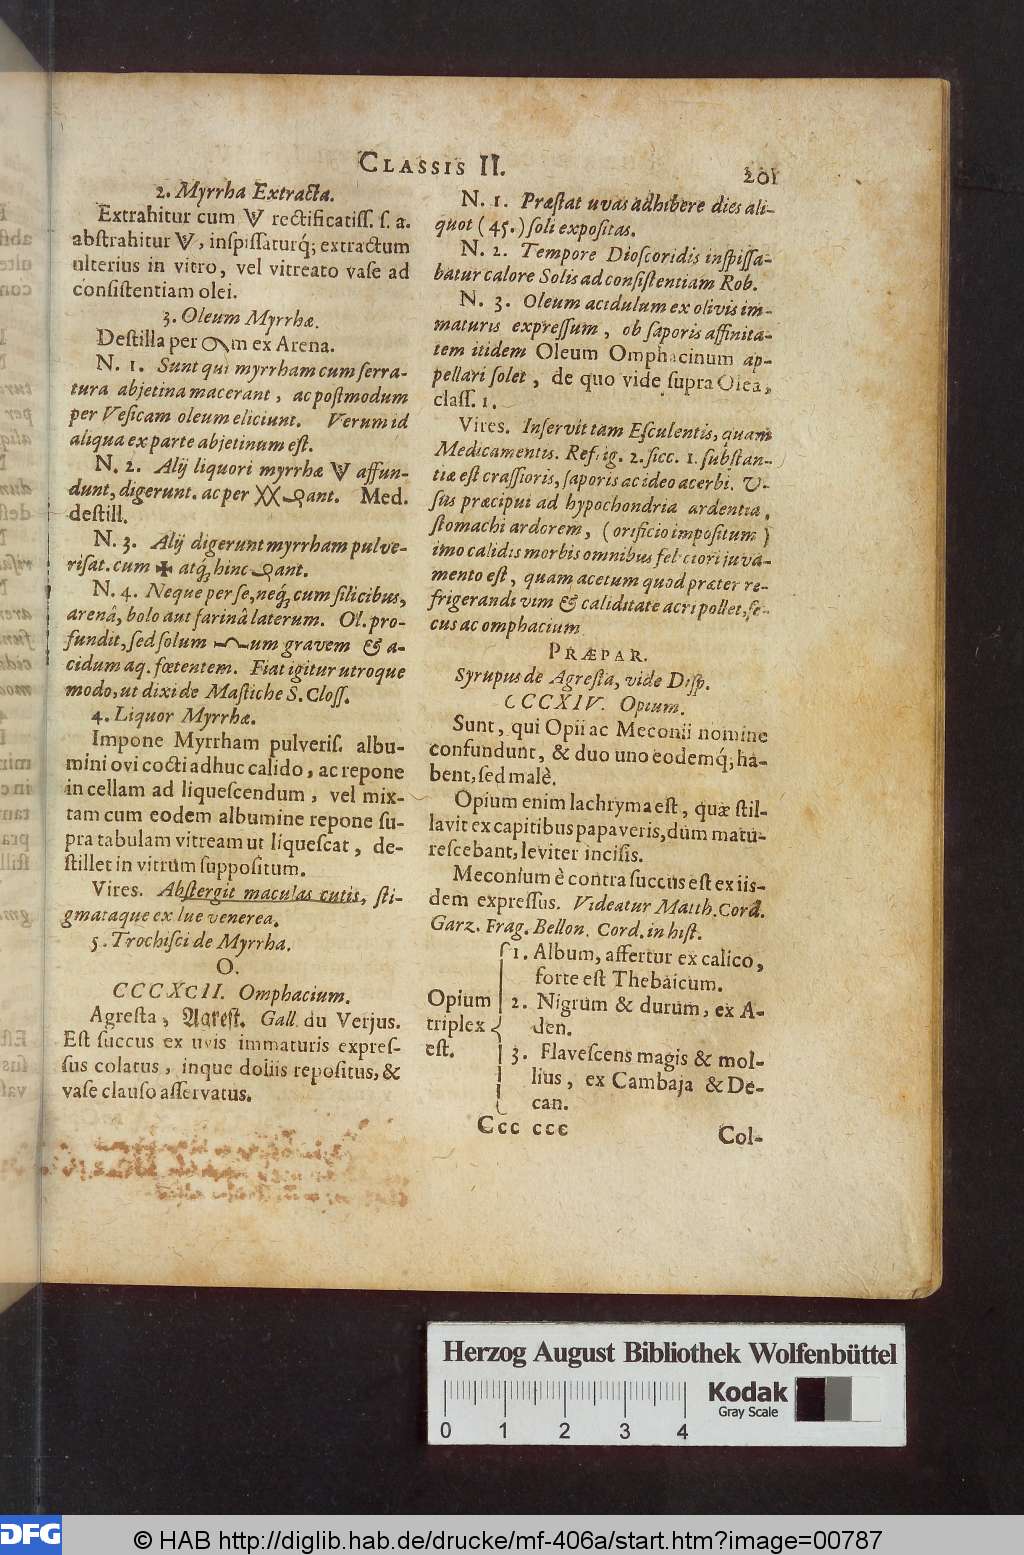 CLASSIS II.
201
2. Myrrha Extracta.
Extrahitur cum rectificatiss. s. a.
abstrahitur , inspissaturq́; extractum
ulterius in vitro, vel vitreato vase ad
consistentiam olei.
3. Oleum Myrrhæ.
Destilla per m ex Arena.
N. 1. Sunt qui myrrham cum serra-
tura abjetina macerant, ac postmodum
per Vesicam oleum eliciunt. Verum id
aliqua ex parte abjetinum est.
N. 2. Alij liquori myrrhæ affun-
dunt, digerunt. ac per ant. Med.
destill.
N. 3. Alij digerunt myrrham pulve-
risat. cum ✠ atq́; hinc ant.
N. 4. Neque per se, neq́; cum silicibus,
arenâ, bolo aut farinâ laterum. Ol. pro-
fundit, sed solum um gravem & a-
cidum aq. fœtentem. Fiat igitur utroque
modo, ut dixi de Mastiche S. Closs.
4. Liquor Myrrhæ.
Impone Myrrham pulveris. albu-
mini ovi cocti adhuc calido, ac repone
in cellam ad liquescendum, vel mix-
tam cum eodem albumine repone su-
pra tabulam vitream ut liquescat, de-
stillet in vitrum suppositum.
Vires. Abstergit maculas cutis, sti-
gmataque ex lue venerea.
5. Trochisci de Myrrha.
O.
CCCXCII. Omphacium.
Agresta, Agrest. Gall. du Verjus.
Est succus ex uvis immaturis expres-
sus colatus, inque doliis repositus, &
vase clauso asservatus.
N. 1. Præstat uvas adhibere dies ali-
quot (45.) soli expositas.
N. 2. Tempore Dioscoridis inspissa-
batur calore Solis ad consistentiam Rob.
N. 3. Oleum acidulum ex olivis im-
maturis expressum, ob saporis affinita-
tem itidem Oleum Omphacinum ap-
pellari solet, de quo vide supra Olea,
class. 1.
Vires. Inservit tam Esculentis, quam
Medicamentis. Refrig. 2. sicc. 1. substan-
tiæ est crassioris, saporis ac ideo acerbi. U-
sus præcipui ad hypochondria ardentia,
stomachi ardorem, (orificio impositum)
imo calidis morbis omnibus felicior juva-
mento est, quam acetum quod præter re-
frigerandi vim & caliditate acri pollet, se-
cus ac omphacium
PRÆPAR.
Syrupus de Agresta, vide Disp.
CCCXIV. Opium.
Sunt, qui Opii ac Meconii nomine
confundunt, & duo uno eodemq́; ha-
bent, sed malè.
Opium enim lachryma est, quæ stil-
lavit ex capitibus papaveris, dum matu-
rescebant, leviter incisis.
Meconium è contra succus est ex iis-
dem expressus. Videatur Matth. Cord.
Garz. Frag. Bellon. Cord. in hist.
Opium triplex est.
1. Album, affertur ex calico,
forte est Thebaicum.
2. Nigrum & durum, ex A-
den.
3. Flavescens magis & mol-
lius, ex Cambaja & De-
can.
Ccc ccc
Col-
Herzog August Bibliothek Wolfenbüttel
0 1 2 3 4
Kodak
Gray Scale
DFG
© HAB http://diglib.hab.de/drucke/mf-406a/start.htm?image=00787